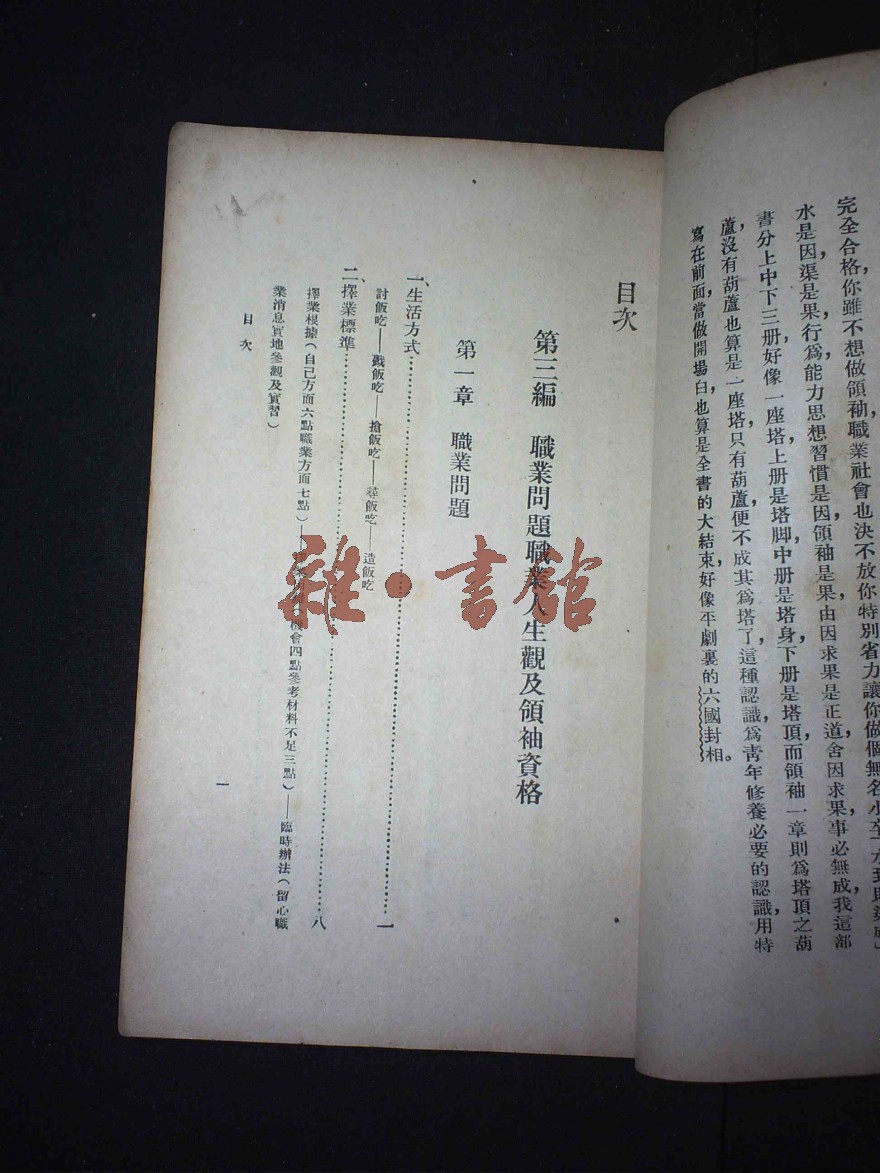 完全合格，你雖不想做領袖，職業社會也決不放你特別省力，讓你做個無名小卒「水到渠成」
水是因，渠是果，行為，能力，思想，習慣是因，領袖是果，由因求果是正道，舍因求果，事必無成，我這部
書分上中下三册，好像一座塔，上册是塔脚，中册是塔身，下册是塔頂，而領袖一章則為塔頂之葫
蘆，沒有葫蘆也算是一座塔，只有葫蘆便不成其為塔了，這種認識為青年修養必要的認識，用特
寫在前面，當做開場白，也算是全書的大結束，好像平劇裏的六國封相。
目次
第三編 職業問題職業人生觀及領袖資格
第一章 職業問題
一、生活方式……一
討飯吃——戤飯吃——搶飯吃——尋飯吃——造飯吃
二、擇業標準……八
擇業根據（自己方面六點職業方面七點）——機會四點參考材料不足三點）——臨時辦法（留心職
業消息實地參觀及實習）
目次
一
雜·書館